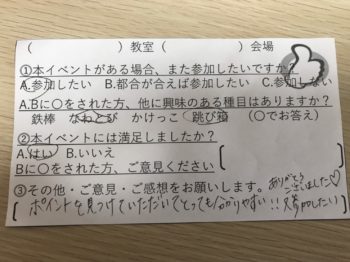 (　　　　　　) 教室 (　　　　　　) 会場
①本イベントがある場合、また参加したいですか?
A.参加したい　B.都合が合えば参加したい　C.参加しない
A.Bに〇をされた方、他に興味のある種目はありますか?
鉄棒　なわとび　かけっこ　跳び箱　(〇でお答え)
②本イベントには満足しましたか?
A.はい　B.いいえ
Bに〇をされた方、ご意見ください
③その他・ご意見・ご感想をお願いします。
ありがとう
ございました♡
ポイントを見つけていただいてとっても分かりやすい!!又参加したい